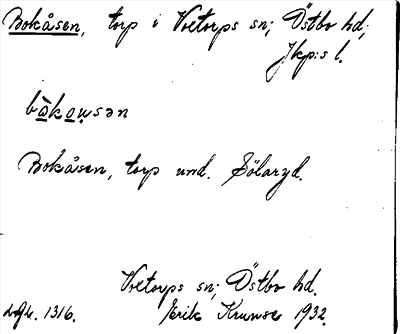 Bokåsen, torp i Voetorps sn; Östbo hd;
Jkp:s l.
bo̱ko̱u̱sən
Bokåsen, torp und. Sölaryd.
Voetorps sn; Östbo hd.
1316. Erik Krumse 1932.